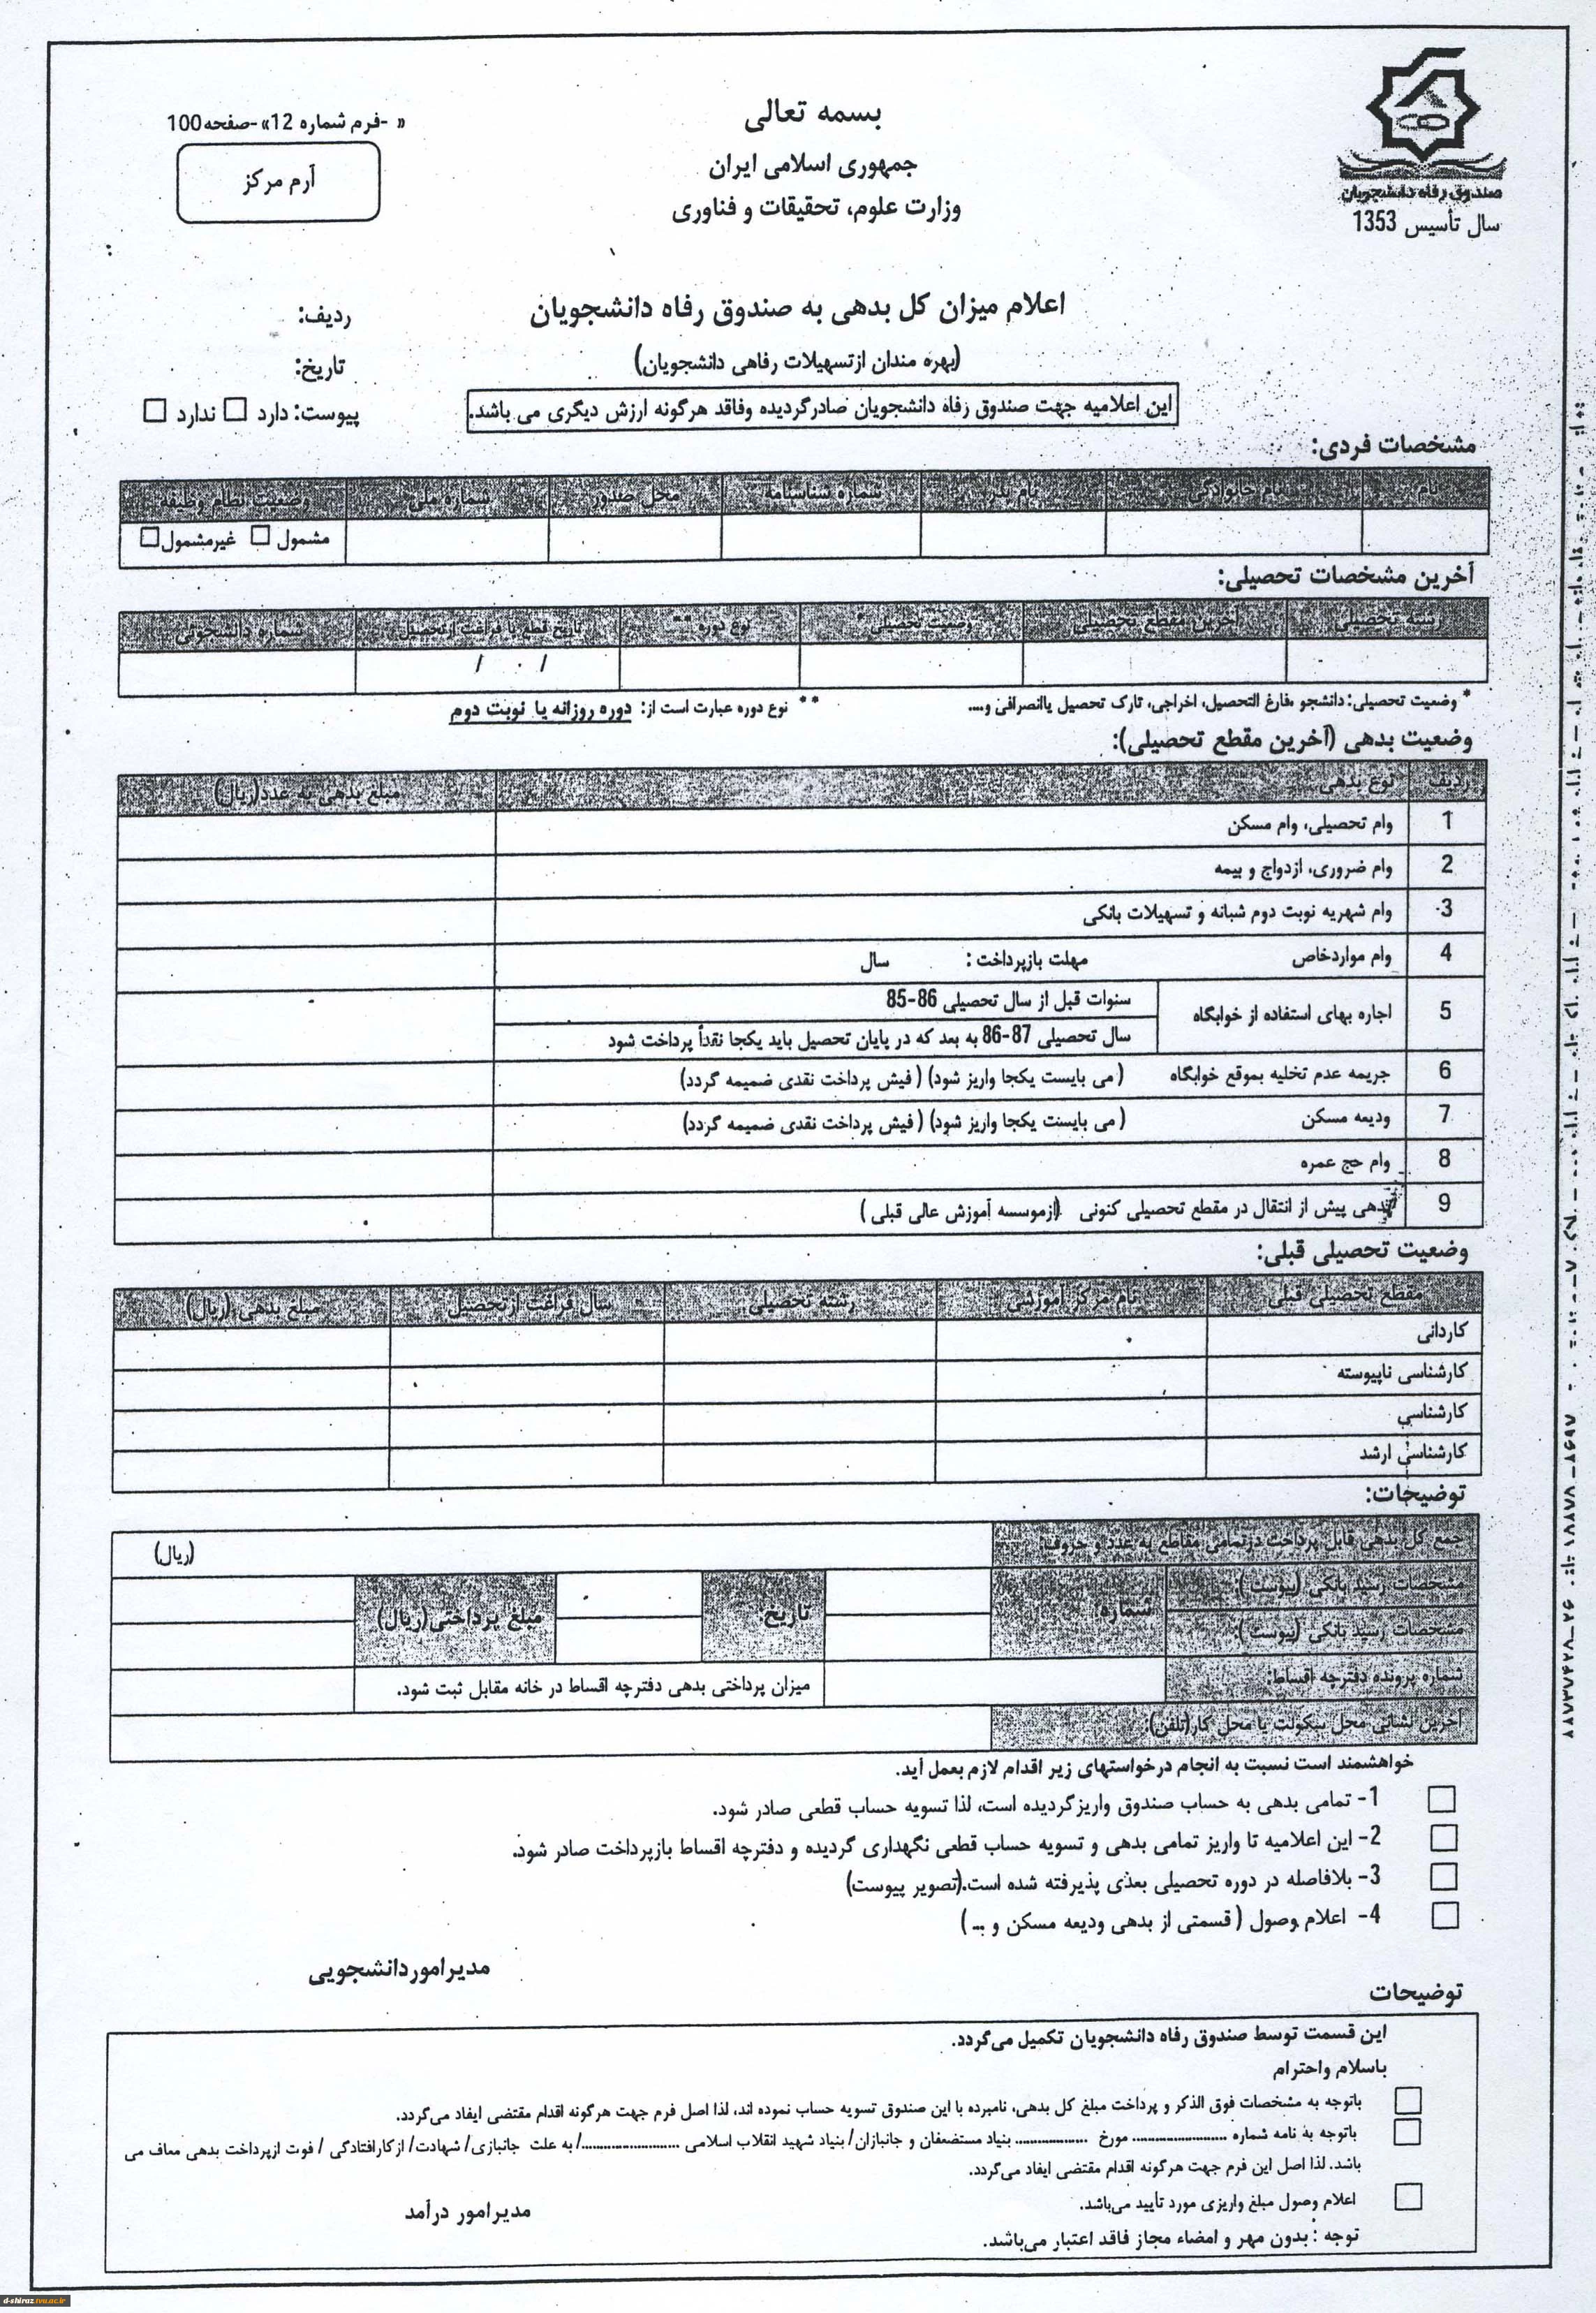 بسمه تعالی
جمهوری اسلامی ایران
وزارت علوم، تحقیقات و فناوری
صندوق رفاه دانشجویان
سال تأسیس 1353
« -فرم شماره 12»-صفحه100
آرم مرکز
اعلام میزان کل بدهی به صندوق رفاه دانشجویان
(بهره مندان ازتسهیلات رفاهی دانشجویان)
این اعلامیه جهت صندوق رفاه دانشجویان صادرگردیده وفاقد هرگونه ارزش دیگری می باشد.
ردیف:
تاریخ:
پیوست: دارد □ ندارد □
مشخصات فردی:
نام نام خانوادگی نام پدر شماره شناسنامه محل صدور شماره ملی وضعیت نظام وظیفه
مشمول □ غیرمشمول □
آخرین مشخصات تحصیلی:
رشته تحصیلی آخرین مقطع تحصیلی وضعیت تحصیلی* نوع دوره ** تاریخ قطع یا فراغت ازتحصیل شماره دانشجوئی
/ /
* وضعیت تحصیلی: دانشجو ،فارغ التحصیل، اخراجی، تارک تحصیل یاانصرافی و.... ** نوع دوره عبارت است از: دوره روزانه یا نوبت دوم
وضعیت بدهی (آخرین مقطع تحصیلی):
ردیف نوع بدهی مبلغ بدهی به عدد(ریال)
1 وام تحصیلی، وام مسکن
2 وام ضروری، ازدواج و بیمه
3 وام شهریه نوبت دوم شبانه و تسهیلات بانکی
4 وام مواردخاص مهلت بازپرداخت : سال
5 اجاره بهای استفاده از خوابگاه
سنوات قبل از سال تحصیلی 86-85
سال تحصیلی 87-86 به بعد که در پایان تحصیل باید یکجا نقداً پرداخت شود
6 جریمه عدم تخلیه بموقع خوابگاه (می بایست یکجا واریز شود) (فیش پرداخت نقدی ضمیمه گردد)
7 ودیعه مسکن (می بایست یکجا واریز شود) (فیش پرداخت نقدی ضمیمه گردد)
8 وام حج عمره
9 بدهی پیش از انتقال در مقطع تحصیلی کنونی (ازموسسه آموزش عالی قبلی )
وضعیت تحصیلی قبلی:
مقطع تحصیلی قبلی نام مرکز آموزشی رشته تحصیلی سال فراغت ازتحصیل مبلغ بدهی (ریال)
کاردانی
کارشناسی ناپیوسته
کارشناسی
کارشناسی ارشد
توضیحات:
جمع کل بدهی قابل پرداخت درتمامی مقاطع به عدد و حروف: (ریال)
مشخصات رسید بانکی (پیوست ): شماره: تاریخ: مبلغ پرداختی(ریال)
مشخصات رسید بانکی (پیوست ):
شماره پرونده دفترچه اقساط: میزان پرداختی بدهی دفترچه اقساط در خانه مقابل ثبت شود.
آخرین نشانی محل سکونت یا محل کار(تلفن):
خواهشمند است نسبت به انجام درخواستهای زیر اقدام لازم بعمل آید.
□ 1- تمامی بدهی به حساب صندوق واریزگردیده است، لذا تسویه حساب قطعی صادر شود.
□ 2- این اعلامیه تا واریز تمامی بدهی و تسویه حساب قطعی نگهداری گردیده و دفترچه اقساط بازپرداخت صادر شود.
□ 3- بلافاصله در دوره تحصیلی بعدی پذیرفته شده است.(تصویر پیوست)
□ 4- اعلام وصول ( قسمتی از بدهی ودیعه مسکن و ... )
مدیراموردانشجویی
توضیحات
این قسمت توسط صندوق رفاه دانشجویان تکمیل می‌گردد.
باسلام واحترام
□ باتوجه به مشخصات فوق الذکر و پرداخت مبلغ کل بدهی، نامبرده با این صندوق تسویه حساب نموده اند، لذا اصل فرم جهت هرگونه اقدام مقتضی ایفاد می‌گردد.
□ باتوجه به نامه شماره ........................ مورخ ................... بنیاد مستضعفان و جانبازان/ بنیاد شهید انقلاب اسلامی ........................../ به علت جانبازی/ شهادت/ ازکارافتادگی / فوت ازپرداخت بدهی معاف می
باشد. لذا اصل این فرم جهت هرگونه اقدام مقتضی ایفاد می‌گردد.
□ اعلام وصول مبلغ واریزی مورد تأیید می‌باشد.
مدیرامور درآمد
توجه : بدون مهر و امضاء مجاز فاقد اعتبار می‌باشد.
d-shiraz.tvu.ac.ir